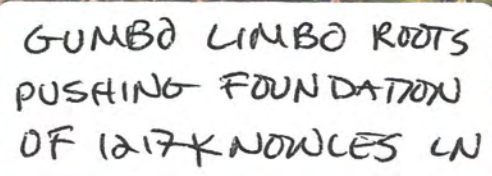 GUMBO LIMBO ROOTS
PUSHING FOUNDATION
OF 1217 KNOWLES LN